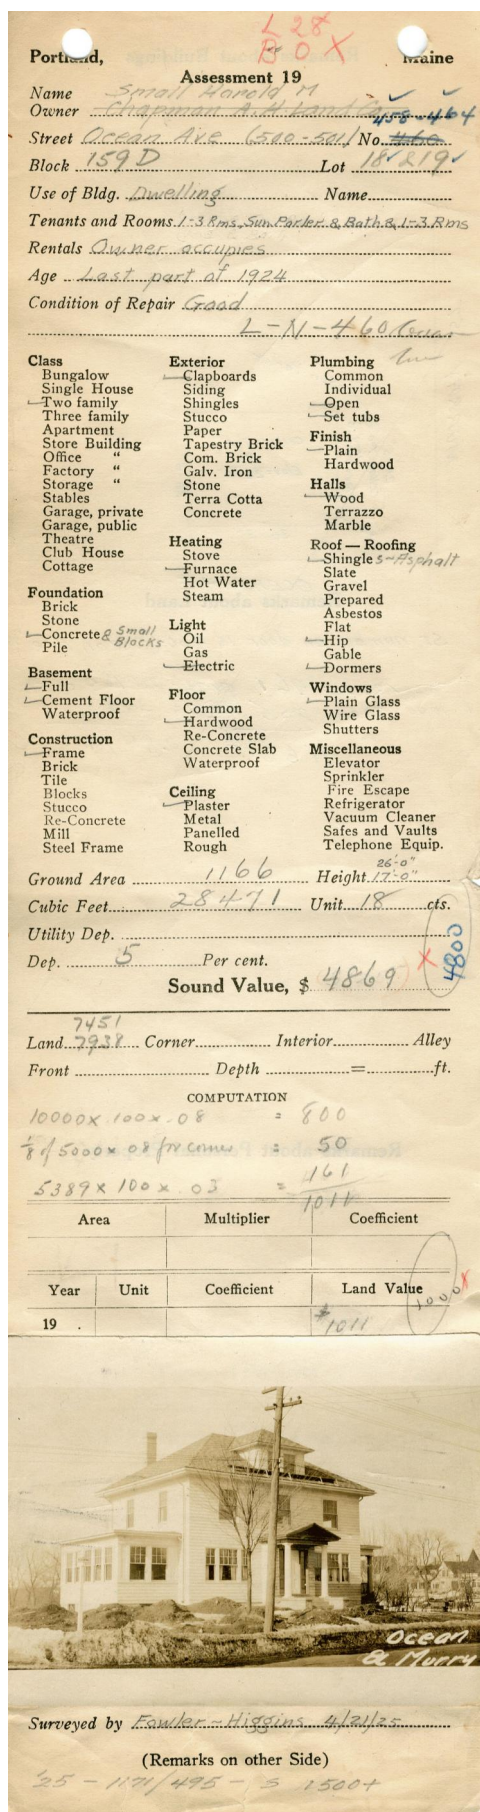 L 28
B O X
Portland, Maine
Assessment 19
Name Small Harold M
Owner Chapman A. H Land Co
458-464
Street Ocean Ave (500-501) No. 460
Block 159 D Lot 18 & 19
Use of Bldg. Dwelling Name
Tenants and Rooms 1-3 Rms, Sun Parler & Bath & 1-3 Rms
Rentals Owner occupies
Age Last part of 1924
Condition of Repair Good
L-N-460 Ocean
Class
Bungalow
Single House
Two family
Three family
Apartment
Store Building
Office "
Factory "
Storage "
Stables
Garage, private
Garage, public
Theatre
Club House
Cottage
Foundation
Brick
Stone
Concrete & Small Blocks
Pile
Basement
Full
Cement Floor
Waterproof
Construction
Frame
Brick
Tile
Blocks
Stucco
Re-Concrete
Mill
Steel Frame
Exterior
Clapboards
Siding
Shingles
Stucco
Paper
Tapestry Brick
Com. Brick
Galv. Iron
Stone
Terra Cotta
Concrete
Heating
Stove
Furnace
Hot Water
Steam
Light
Oil
Gas
Electric
Floor
Common
Hardwood
Re-Concrete
Concrete Slab
Waterproof
Ceiling
Plaster
Metal
Panelled
Rough
Plumbing
Common
Individual
Open
Set tubs
Finish
Plain
Hardwood
Halls
Wood
Terrazzo
Marble
Roof — Roofing
Shingle s-Asphalt
Slate
Gravel
Prepared
Asbestos
Flat
Hip
Gable
Dormers
Windows
Plain Glass
Wire Glass
Shutters
Miscellaneous
Elevator
Sprinkler
Fire Escape
Refrigerator
Vacuum Cleaner
Safes and Vaults
Telephone Equip.
26'-0"
Ground Area 1166 Height 17'-0"
Cubic Feet 28471 Unit 18 cts.
Utility Dep.
Dep. 5 Per cent.
Sound Value, $ 4869 X 4800
7451
Land 7938 Corner Interior Alley
Front Depth = ft.
COMPUTATION
10000 x .100 x .08 = 800
1/8 of 5000 x .08 for corner = 50
5389 x 100 x .03 = 161
1011
Area Multiplier Coefficient
Year Unit Coefficient Land Value 1000 X
19 . $1011
Ocean
& Munry
Surveyed by Fowler-Higgins 4/21/25
(Remarks on other Side)
'25 - 1171/495 - S 1500+